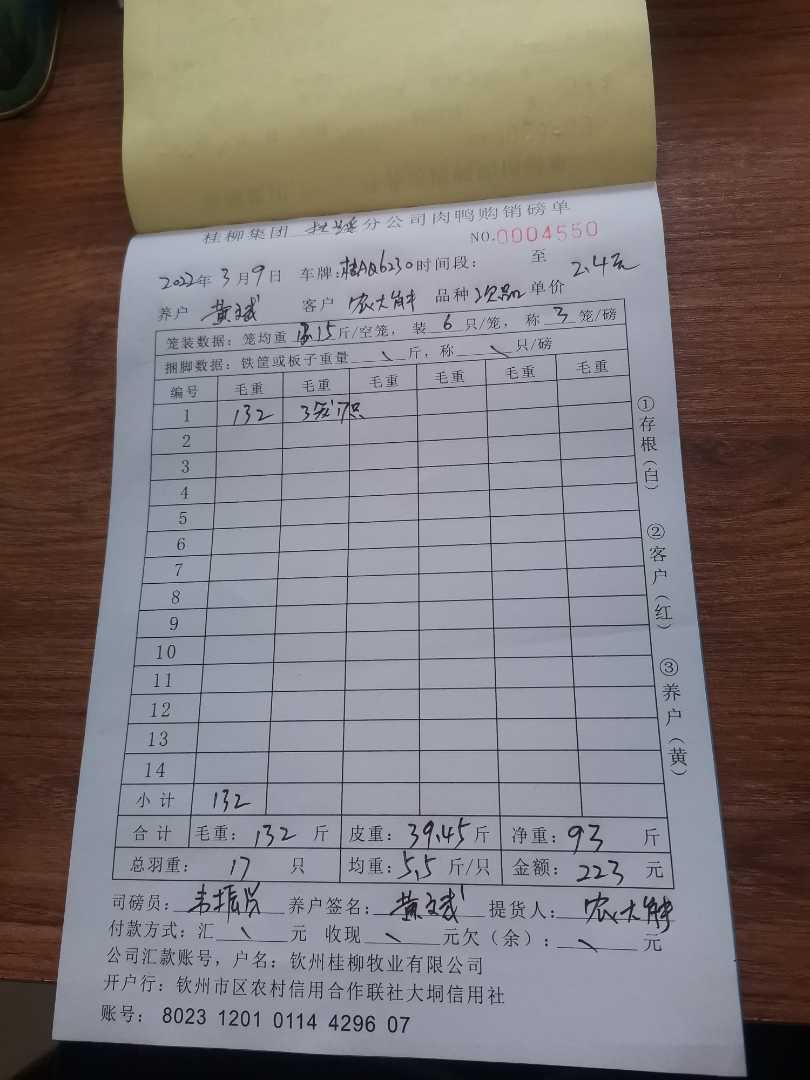 桂柳集团 分公司肉鸭购销磅单
NO.0004550
2022年3月9日 车牌:桂AQ6230 时间段: 至
养户 黄斌 客户 农大胖 品种 次品 单价 2.4元
笼装数据:笼均重 15 斤/空笼,装 6 只/笼,称 3 笼/磅
捆脚数据:铁筐或板子重量 \ 斤,称 \ 只/磅
编号 毛重 毛重 毛重 毛重 毛重 毛重
1 132 3笼17只
2
3
4
5
6
7
8
9
10
11
12
13
14
小计 132
合计 毛重:132 斤 皮重:39.45斤 净重:93 斤
总羽重: 17 只 均重:5.5 斤/只 金额:223 元
司磅员: 韦振 养户签名: 黄斌 提货人: 农大胖
付款方式:汇 \ 元 收现 \ 元欠(余): \ 元
公司汇款账号,户名:钦州桂柳牧业有限公司
开户行:钦州市区农村信用合作联社大垌信用社
账号: 8023 1201 0114 4296 07
①存根(白)
②客户(红)
③养户(黄)